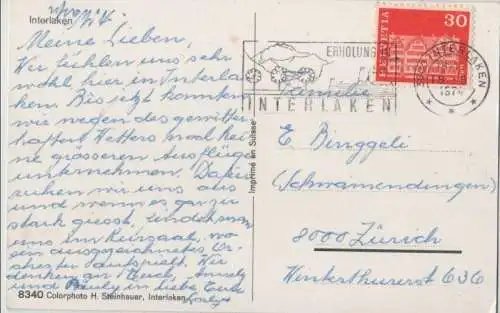 Interlaken
Meine Lieben.
Wir fühlen uns sehr
wohl hier in Interla-
ken. Bis jetzt konnten
wir wegen des gewitter-
haften Wetters noch keine
grösseren Ausflüge
unternehmen. Dafür
ruhen wir uns aus
und wenn es gar zu
stark giesst, sind
uns im Kursaal, wo
ein ausgezeichnetes Or-
chester aufspielt. Wir
denken an Euch,
und Pauly in Liebe Eure
8340 Colorphoto H. Steinhauer, Interlaken
Imprimé en Suisse
ERHOLUNG
INTERLAKEN
HELVETIA
30
INTERLAKEN
Familie
E. Binggeli
(Schwamendingen)
8000 Zürich
Winterthurerst 636